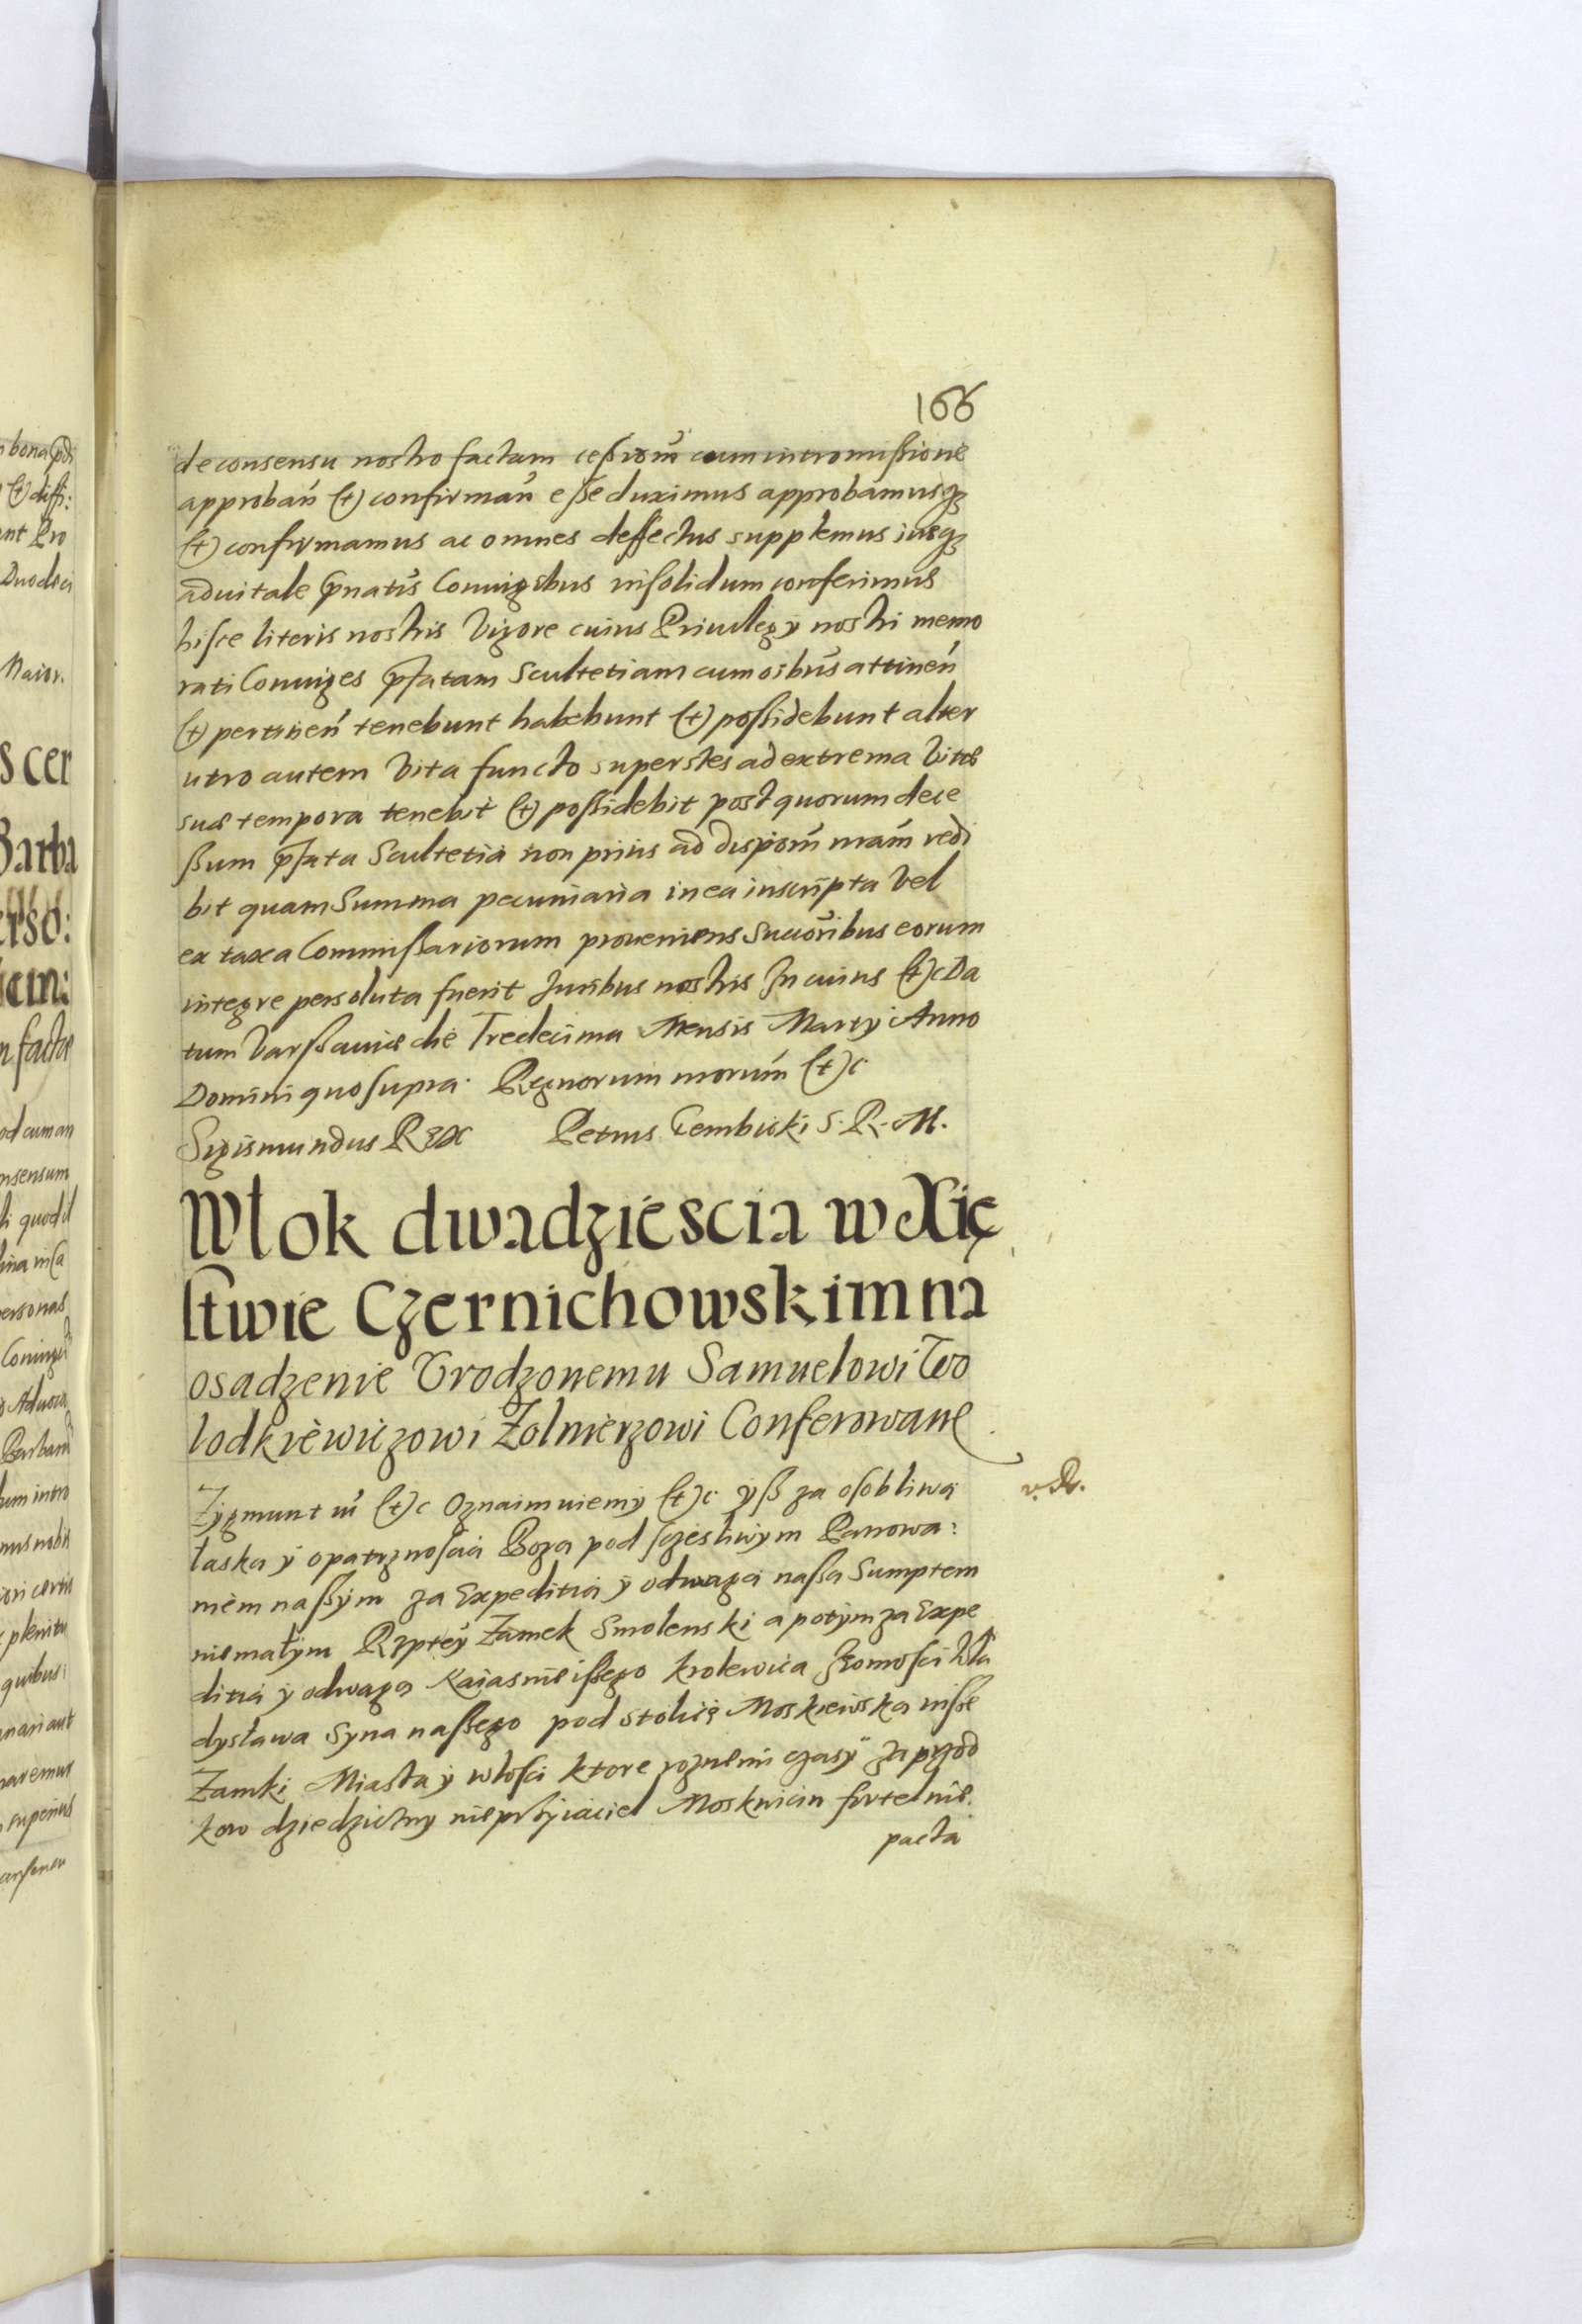 166
de consensu nostro factam cessiom̄ cum intromissione
approbań (et) confirmań esse duximus approbamusq3
(et) confirmamus ac omnes deffectus supplemus iusq3
aduitale p̄natis Coniugibus insolidum conferimus
hisce literis nostris Vigore cuius Priuilegÿ nostri memo
rati Coniuges p̄fatam Scultetiam cum oibus attineń
(et) pertineń tenebunt habebunt (et) possidebunt alter
utro autem Vita functo superstes ad extrema Vitæ
suæ tempora tenebit (et) possidebit post quorum dece
ssum p̄fata Scultetia non prius ad dispoom̄ nram̄ redi
bit quam Summa pecuniaria in ea inscripta Vel
ex taxa Commissariorum proueniens Succoribus eorum
integre persoluta fuerit Juribus nostris In cuius (et)c Da
tum Varssauiæ die Tredecima Mensis Martÿ Anno
Domini quo supra. Regnorum nrorum̄ (et)c
Sigismundus Rex Petrus Gembicki S. R. M.
Wlok dwadziescia w Xię
stwie Czernichowskim na
osadzenie Vrodzonemu Samuelowi Wo
lodkiewiczowi Zolnierzowi Conferowane
v. Dr.
Zygmunt iii (et)c Oznaimuiemy (et)c yss za osobliwą
łaską ÿ opatrznoscią Bozą pod sczesliwym Panowa:
niem nassym za Expeditią ÿ odwagą nassą Sumptem
niemałym Rzptey Zamek Smolenski a potym za Expe
ditią ÿ odwagą Naiasnieissego krolewica Jeomosci Wła
dysława Syna nassego pod stolicę Moskiewską insse
Zamki Miasta ÿ włosci ktore roznemi czasÿ za przod
kow dziedziczny nieprzyiaciel Moskwicin fortelnie.
pacta